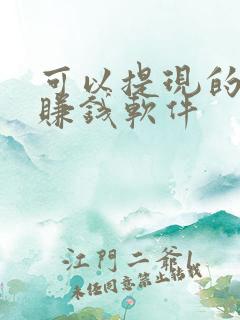 可以提現的
賺錢軟件
江門二爺l
未任同意禁止轉載